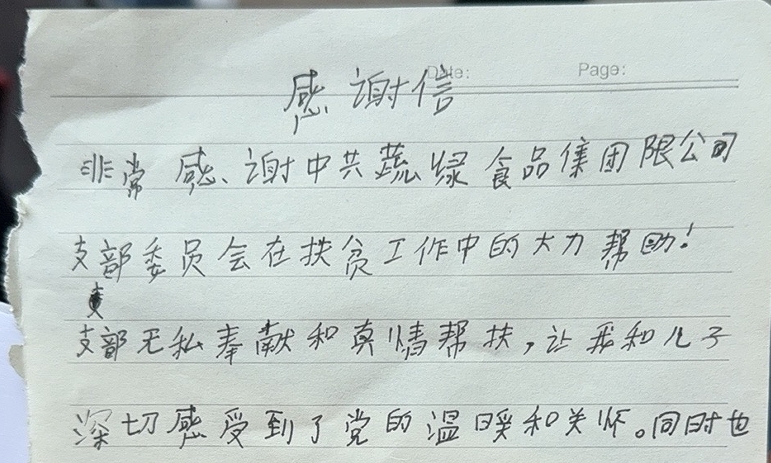 Date: Page:
感谢信
非常感谢中共蔬绿食品集团限公司
支部委员会在扶贫工作中的大力帮助!
支部无私奉献和真情帮扶,让我和儿子
深切感受到了党的温暖和关怀。同时也